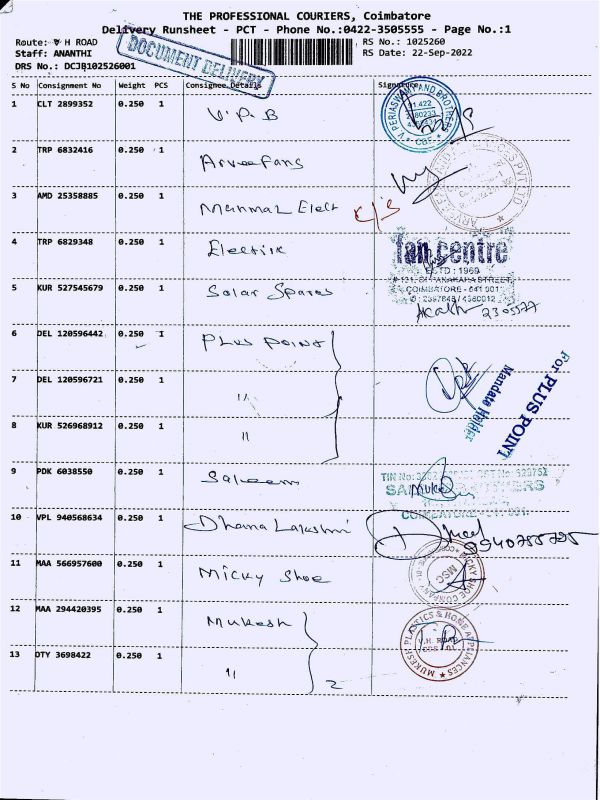 THE PROFESSIONAL COURIERS, Coimbatore
Delivery Runsheet - PCT - Phone No.:0422-3505555 - Page No.:1
Route: V H ROAD
RS No.: 1025260
Staff: ANANTHI
RS Date: 22-Sep-2022
DRS No.: DCJB102526001
DOCUMENT DELIVERY
S No Consignment No Weight PCS Consignee Details Signature
1 CLT 2899352 0.250 1 V.P.B
V. PERIASWAMY AND BROTHERS
CBE
2 TRP 6832416 0.250 1 Arvee fans
3 AMD 25358885 0.250 1 Manmal Elect c/s
4 TRP 6829348 0.250 1 Electrik
fan centre
ESTD : 1969
COIMBATORE - 641 001
5 KUR 527545679 0.250 1 Solar Spares
6 DEL 120596442 0.250 1 Plus point
For PLUS POINT
Mandate Holder
7 DEL 120596721 0.250 1 11
8 KUR 526968912 0.250 1 11
9 PDK 6038550 0.250 1 Saleem
TIN No:
COIMBATORE
10 VPL 940568634 0.250 1 Dhana Lakshmi
11 MAA 566957600 0.250 1 Micky Shoe
MICKY SHOE COMPANY
MSC
12 MAA 294420395 0.250 1 Mukesh
MUKESH PLASTICS & HOME APPLIANCES
V.H. ROAD
13 OTY 3698422 0.250 1 11 2